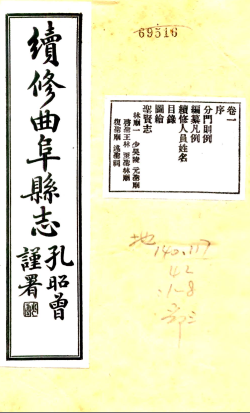 69516
續修曲阜縣志
孔昭曾
謹署
卷一
序
分門則例
編纂凡例
續修人員姓名
目錄
圖繪
聖賢志
林廟一 少昊陵 元聖廟
啓聖王林 亞聖林廟
復聖廟 述聖祠
地
140.117
42
:1-8